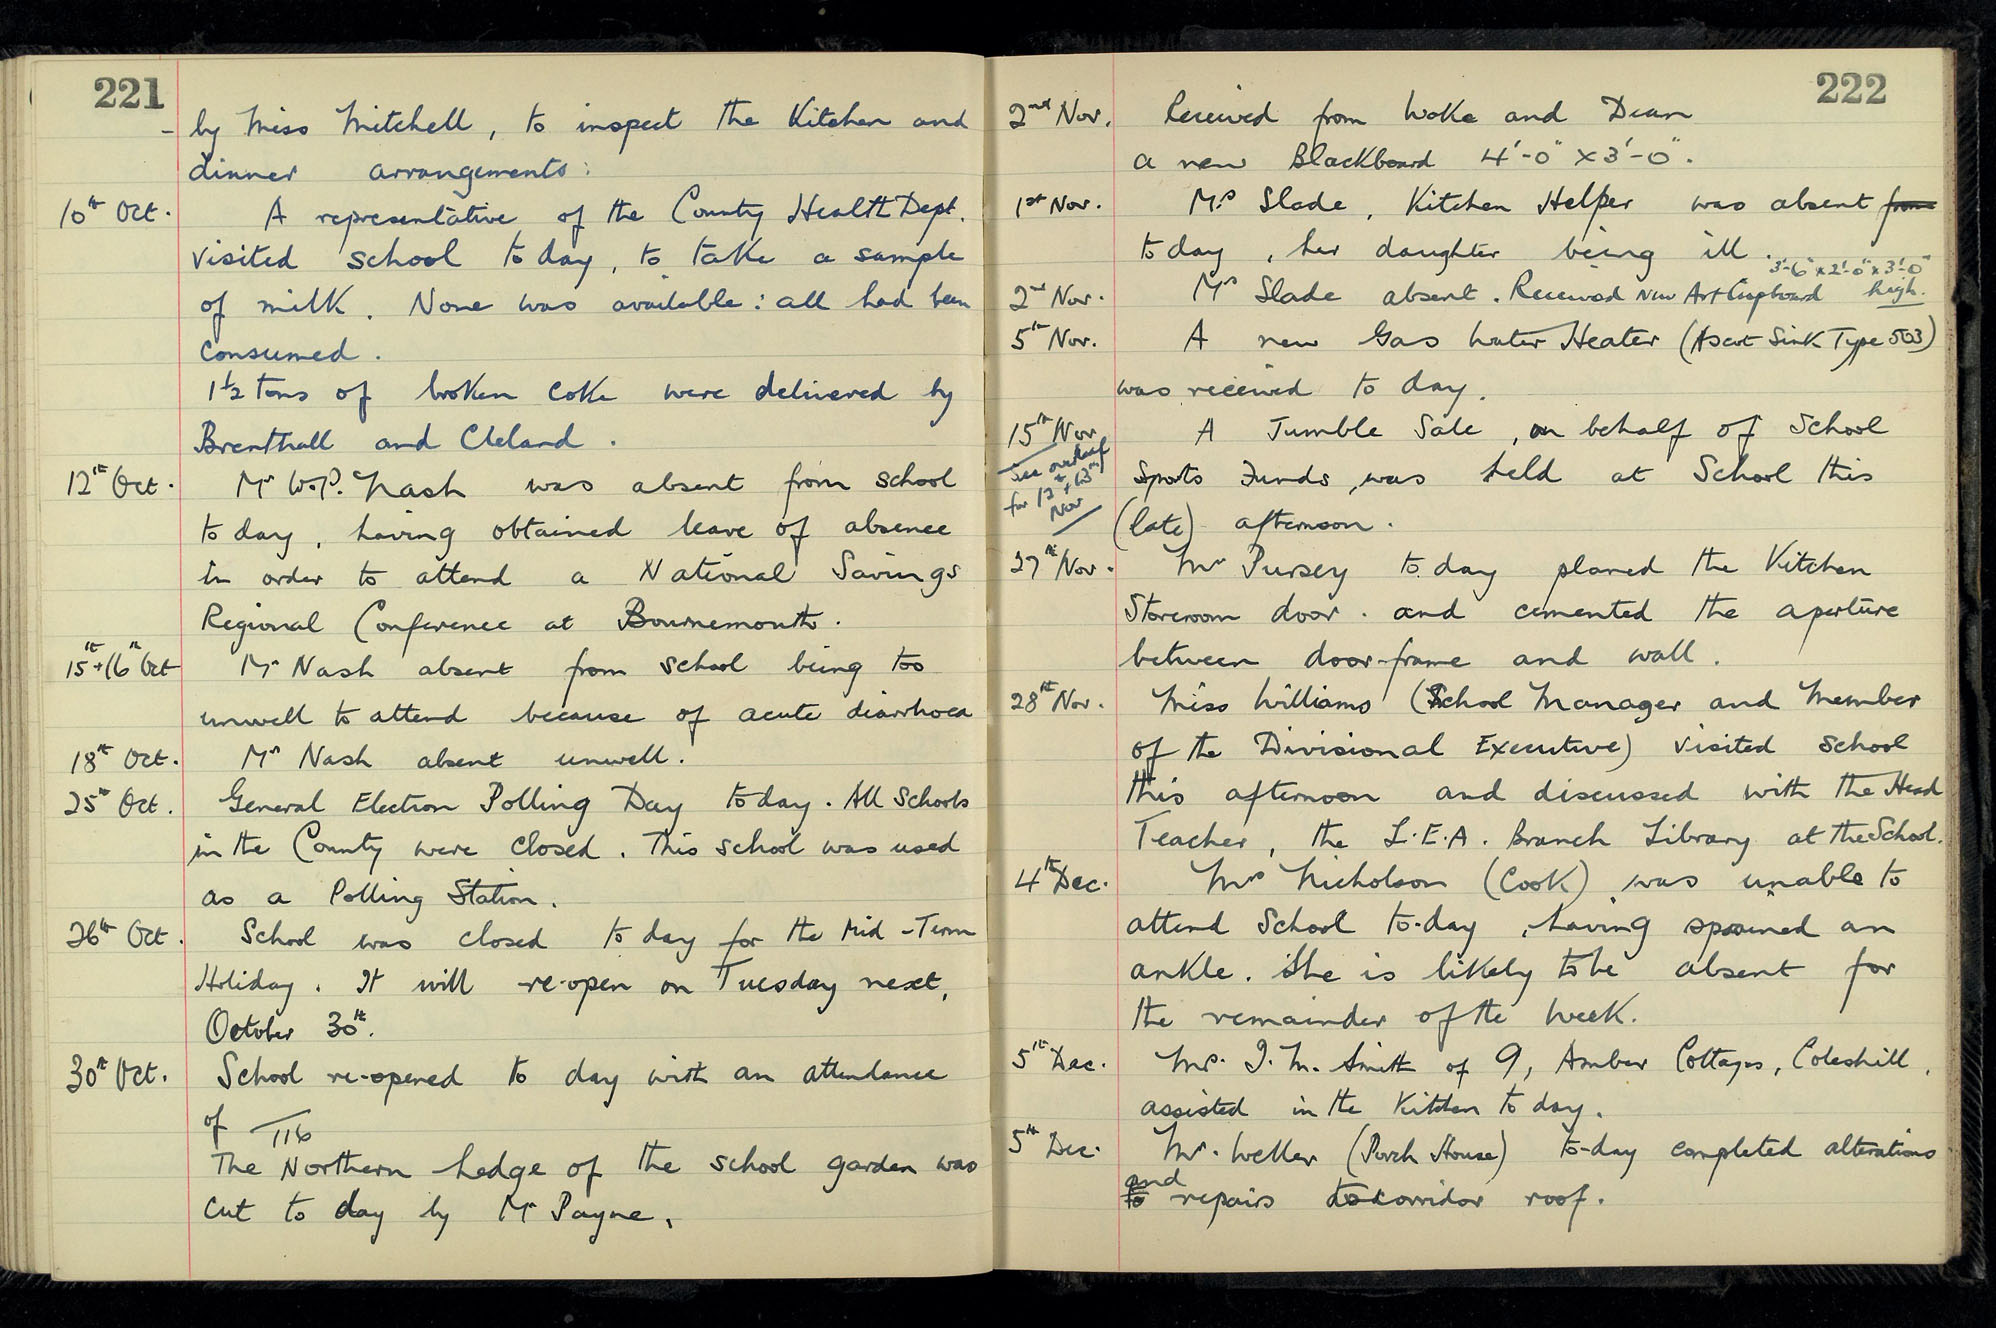 221
- by Miss Mitchell, to inspect the Kitchen and
dinner arrangements:
10th Oct. A representative of the County Health Dept.
visited school to day, to take a sample
of milk. None was available: all had been
consumed.
1½ tons of broken coke were delivered by
Brenthall and Cleland.
12th Oct. Mr W.P. Nash was absent from school
to day, having obtained leave of absence
in order to attend a National Savings
Regional Conference at Bournemouth.
15th + 16th Oct Mr Nash absent from school being too
unwell to attend because of acute diarrhoea
18th Oct. Mr Nash absent unwell.
25th Oct. General Election Polling Day today. All Schools
in the County were closed. This school was used
as a Polling Station.
26th Oct. School was closed to day for the Mid-Term
Holiday. It will re-open on Tuesday next,
October 30th.
30th Oct. School re-opened to day with an attendance
of 116
The Northern hedge of the school garden was
cut to day by Mr Payne.
222
2nd Nov. Received from Wake and Dean
a new Blackboard 4'-0" x 3'-0".
1st Nov. Mrs Slade, Kitchen Helper was absent from
to day, her daughter being ill.
3'-6" x 2'-0" x 3'-0"
2nd Nov. Mrs Slade absent. Received New Art Cupboard high.
5th Nov. A new Gas Water Heater (Ascot Sink Type 503)
was received to day.
15th Nov A Jumble Sale, on behalf of School
see overleaf
for 12th + 13th
Nov
Sports Funds, was held at School this
(late) afternoon.
27th Nov. Mr Pursey to day planed the Kitchen
Storeroom door. and cemented the aperture
between door-frame and wall.
28th Nov. Miss Williams (School Manager and Member
of the Divisional Executive) visited school
this afternoon and discussed with the Head
Teacher, the L.E.A. Branch Library at the School.
4th Dec. Mrs Nicholson (Cook) was unable to
attend School to-day, having sprained an
ankle. She is likely to be absent for
the remainder of the week.
5th Dec. Mrs. I. M. Smith of 9, Amber Cottages, Coleshill,
assisted in the Kitchen to day.
5th Dec. Mr. Weller (Porch House) to-day completed alterations
and
to repairs to corridor roof.